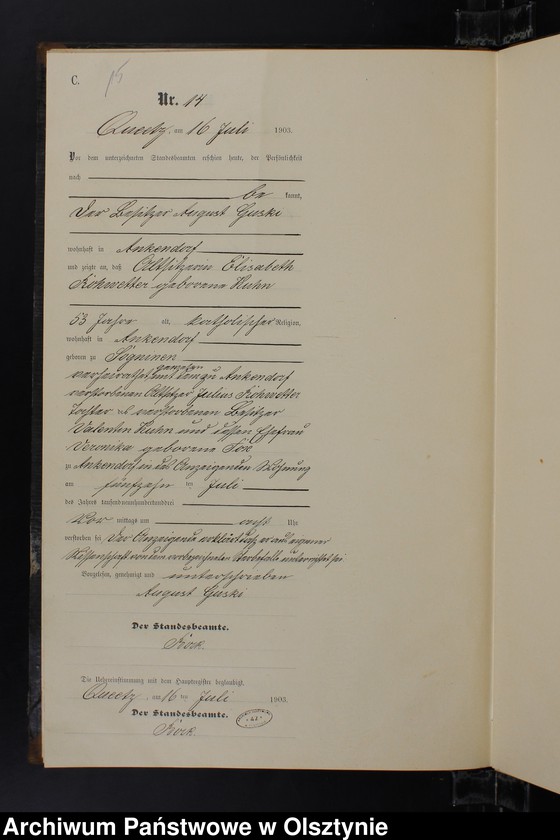 C.
Nr. 14
Queetz, am 16 Juli 1903.
Vor dem unterzeichneten Standesbeamten erschien heute, der Persönlichkeit
nach
be kannt,
Der Besitzer August Guski
wohnhaft in Ankendorf
und zeigte an, daß Altsitzerin Elisabeth
Rohwetter geborene Huhn
53 Jahre alt, katholischer Religion,
wohnhaft in Ankendorf
geboren zu
verheirathet gewesen mit dem zu Ankendorf
verstorbenen Altsitzer Julius Rohwetter
Tochter des verstorbenen Besitzer
Valentin Huhn und dessen Ehefrau
Veronika geborene
zu Ankendorf in des Anzeigenden Wohnung
am fünfzehn ten Juli
des Jahres tausend neunhundertunddrei
Vor mittags um acht Uhr
verstorben sei. Der Anzeigende erklärt, daß er aus eigener
Wissenschaft von dem vorbezeichneten Sterbefalle unterrichtet sei
Vorgelesen, genehmigt und unterschrieben
August Guski
Der Standesbeamte.
Die Uebereinstimmung mit dem Hauptregister beglaubigt.
Queetz, am 16 ten Juli 1903.
Der Standesbeamte.
Archiwum Państwowe w Olsztynie